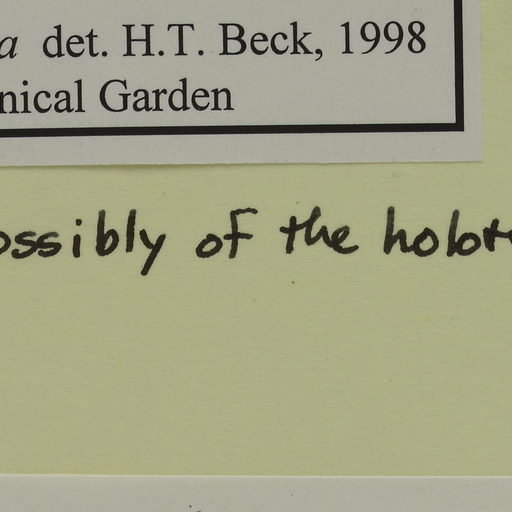 a det. H.T. Beck, 1998
nical Garden
ossibly of the holot